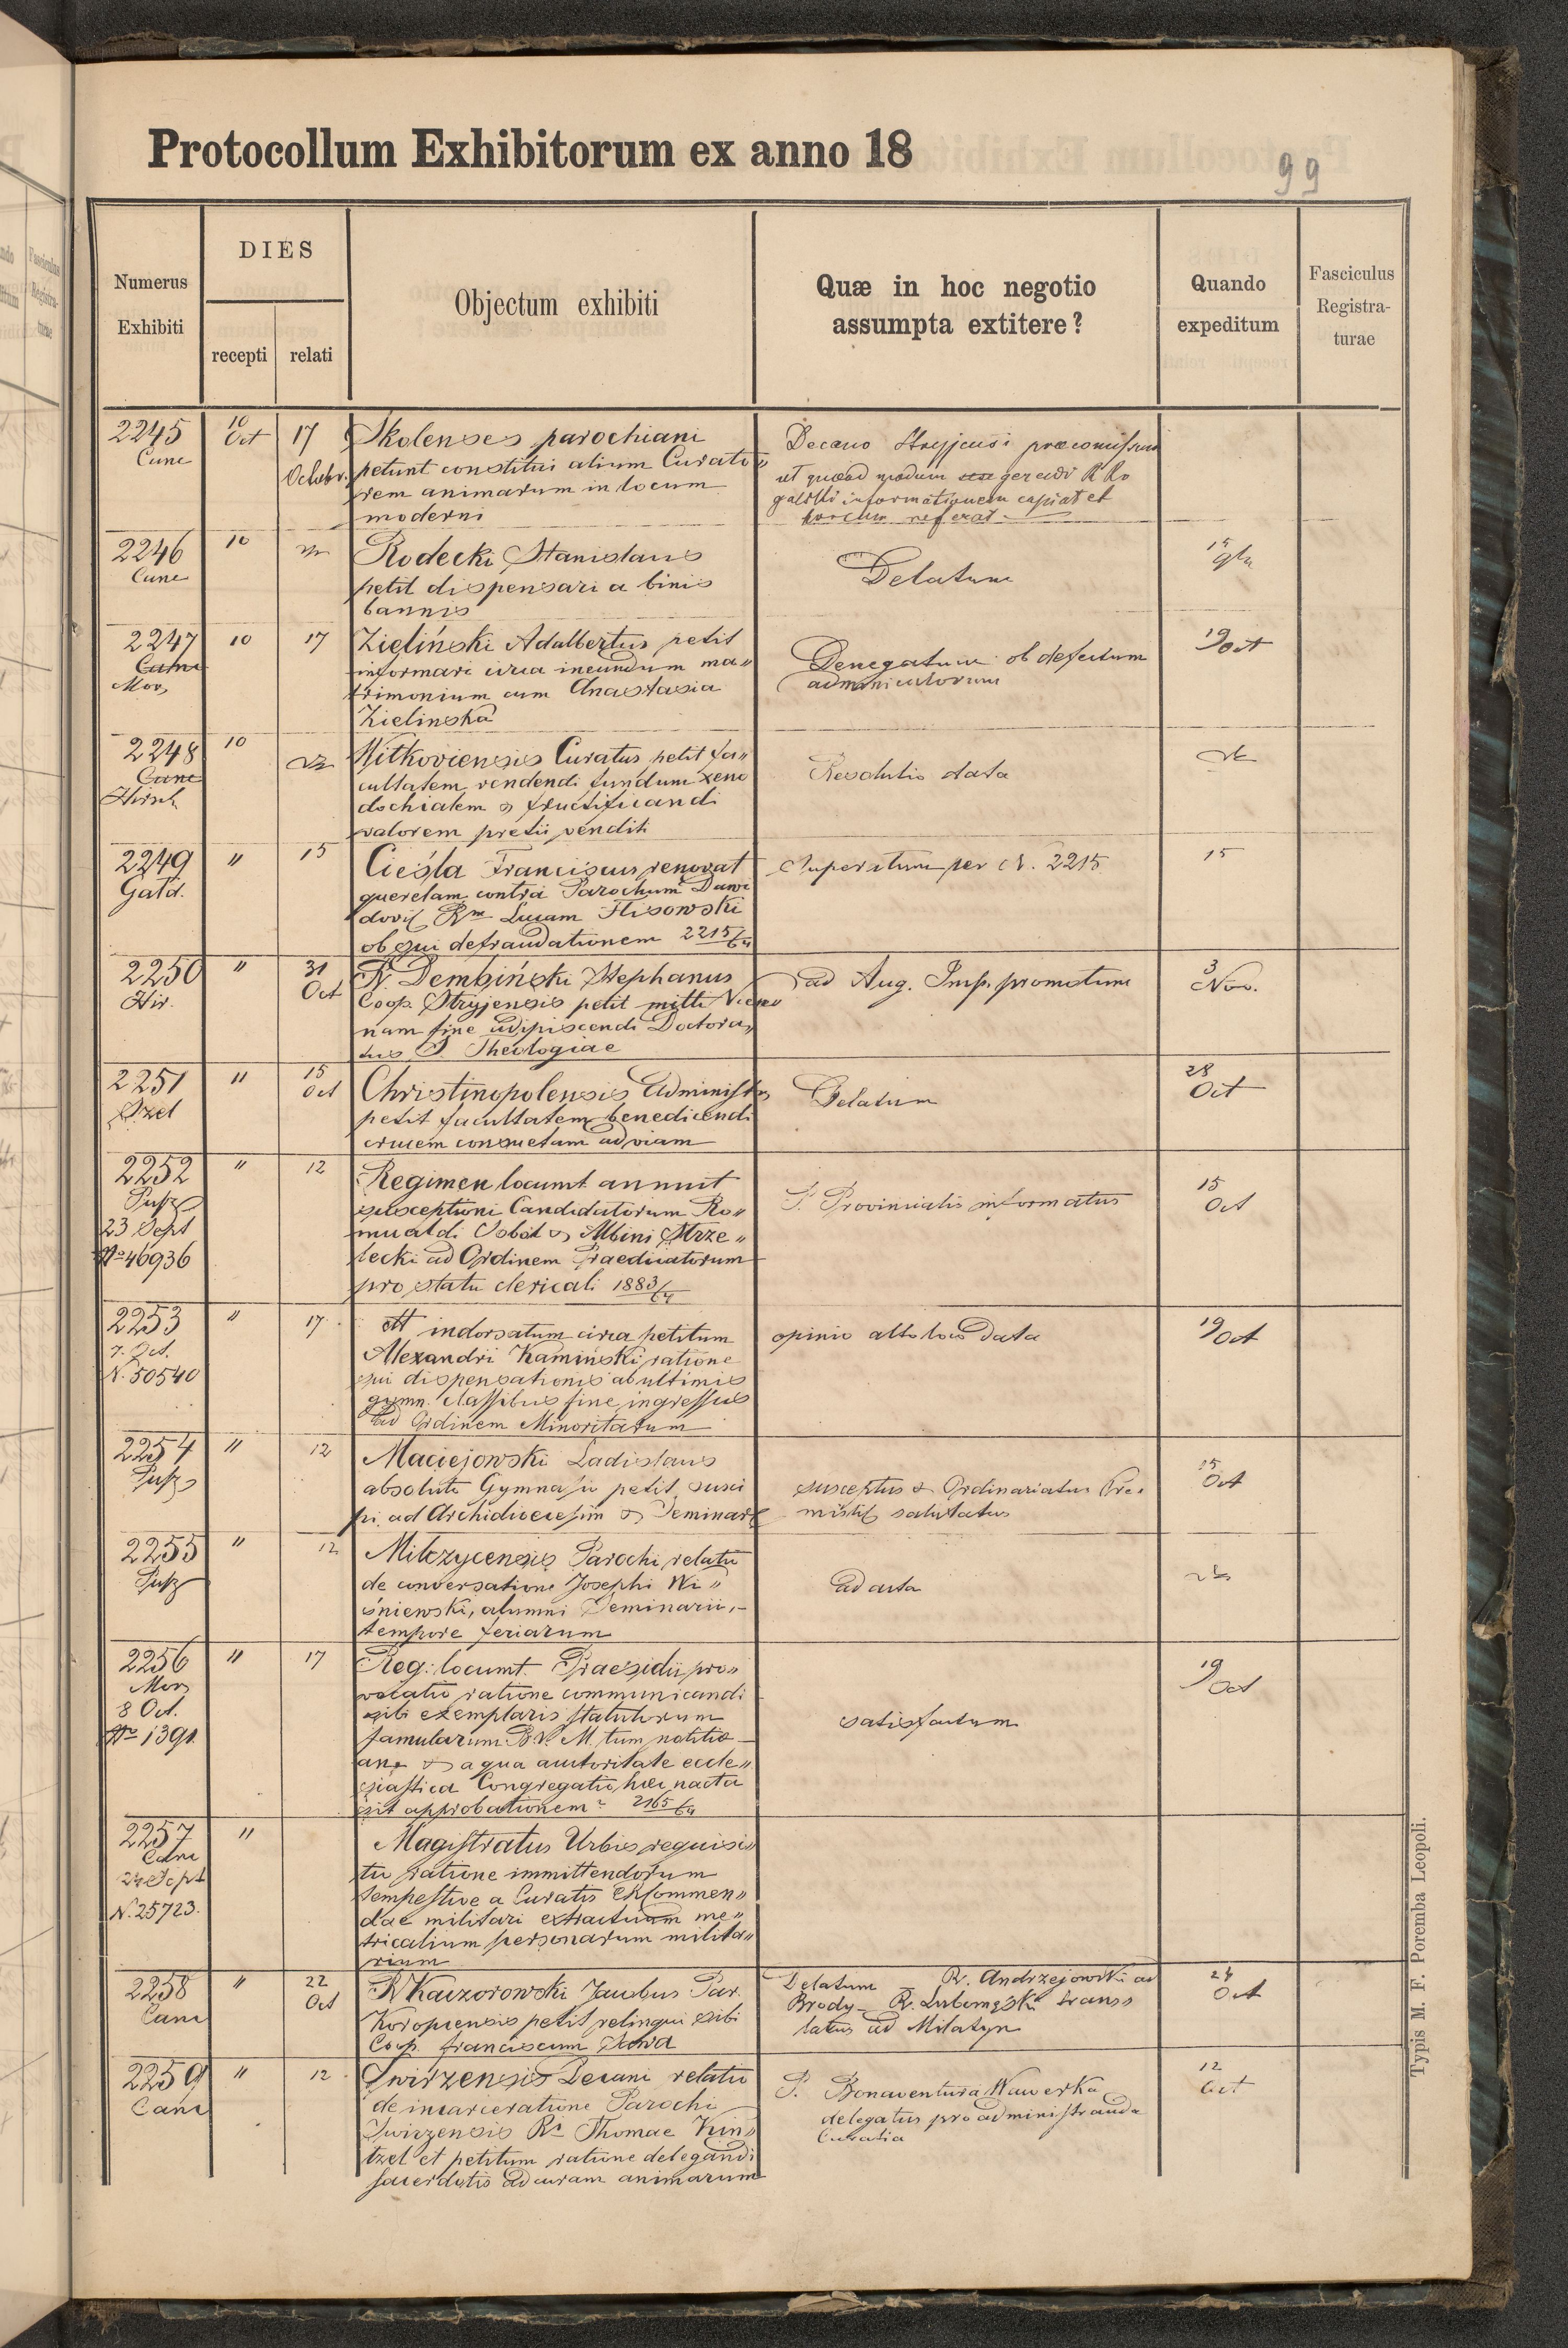 Protocollum Exhibitorum ex anno 18
99
Numerus Exhibiti
DIES
recepti
relati
Objectum exhibiti
Quæ in hoc negotio
assumpta extitere?
Quando
expeditum
Fasciculus
Registra-
turae
2245
Cane
10
Oct
17
Octobr.
Skolenses parochiani
petunt constitui alium Curato„
rem animarum in locum
moderni
Decano Stryjensi præcomissum
ut quoad modum gerendi R Ro
galski informationem capiat et
horsum referat.
2246
Cane
10
Rodecki Stanislaus
petit dispensari a binis
bannis
Delatum
15
2247
Cane
Mor
10
17
Zieliński Adalbertus petit
informari circa ineundum ma„
trimonium cum Anastasia
Zielinska
Denegatum ob defectum
adminiculorum
19 Oct
2248
Cane
Hirsch
10
Witkoviensis Curatus petit fa„
cultatem vendendi fundum xeno
dochialem & fructificandi
valorem pretii venditi
Resolutio data
2249
Gatd.
"
15
Cieśla Franciscus renovat
querelam contra Parochum Dawi
dovi Rm Lucam Flisowski
ob sui defraudationem 2215/64
Superatum per N. 2215
15
2250
Hir.
"
31
Oct
R. Dembiński Stephanus
Coop. Stryjensis petit mitti Vien„
nam fine adipiscendi Doctora„
tus S. Theologiae
ad Aug. Imp. promotum
3
Nov.
2251
"
15
Oct
Christinopolensis Administr
petit facultatem benedicendi
crucem consuetam ad viam
Delatum
28
Oct
2252
Pusz
23 Sept
No 46936
"
12
Regimen locumt. annuit
susceptioni Candidatorum Ro„
mualdi Sobol & Albini Strze„
lecki ad Ordinem Praedicatorum
pro statu clericali 1883/64
P. Provincialis informatus
15
Oct
2253
7. Oct.
N. 50540
"
17
indorsatum circa petitum
Alexandri Kamiński ratione
sui dispensationis ab ultimis
gymn. classibus fine ingressus
ad Ordinem Minoritarum
opinio alto loco data
19 Oct
2254
Pusz
"
12
Maciejowski Ladislaus
absoluti Gymnasii petit susci
pi ad Archidioecesim & Seminar
susceptus & Ordinariatus Pre„
misl salutatus
15
Oct
2255
Pusz
"
12
Milczycensis Parochi relatio
de conversatione Josephi Wi„
śniewski, alumni Seminarii,-
tempore feriarum
ad acta
2256
Mor
8 Oct.
No 1391.
"
17
Reg: locumt. Praesidii pro„
vocatio ratione communicandi
sibi exemplaris statutorum
famularum B.V.M. tum notitiæ
an & a qua auctoritate eccle„
siastica Congregatio hæc nacta
sit approbationem? 2165/64
satisfactum
19 Oct
2257
Cane
24 Sept
N. 25723.
"
Magistratus Urbis requisi„
tio ratione immittendorum
tempestive a Curatis Commen„
dae militari extractuum me„
tricalium personarum milita„
rium
2258
Cane
"
22
Oct
R Kaczorowski Jacobus Par.
Koropiensis petit relinqui sibi
Coop. Franciscum
Delatum R. Andrzejowski ad
Brody - R. Lubomęski trans„
latus ad Milatyn
24
Oct
2259
Cane
"
12
Swirzensis Decani relatio
de incarceratione Parochi
Swirzensis Ri Thomae Kin„
tzel et petitum ratione delegandi
sacerdotis ad curam animarum
P. Bonaventura Wawerka
delegatus pro administranda
Curatia
12
Oct
Typis M. F. Poremba Leopoli.